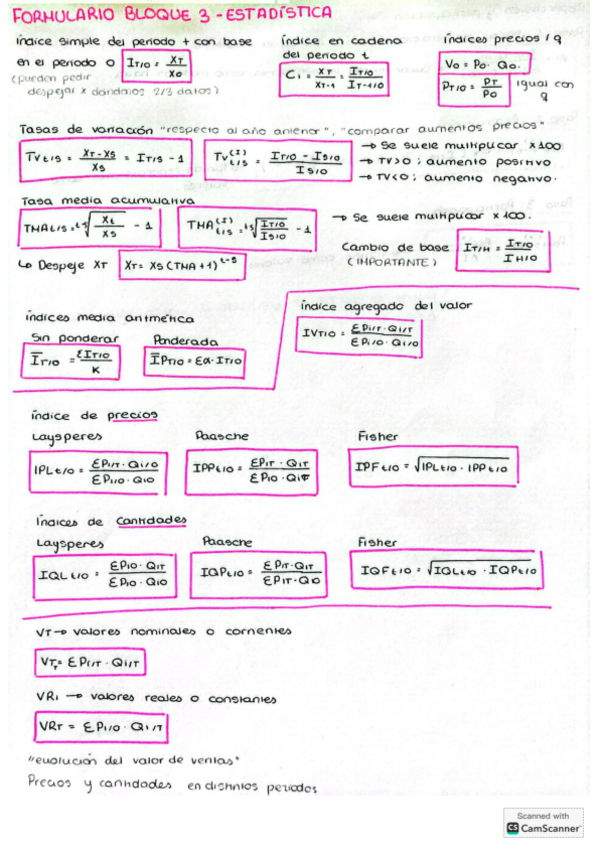 FORMULARIO BLOQUE 3 - ESTADÍSTICA
índice simple del periodo t con base
en el periodo 0 IT/0 = XT/X0
(pueden pedir
despejar x dándonos 2/3 datos)
índice en cadena
del periodo t
Ci = XT/XT-1 = IT/0/IT-1/0
índices precios / q
V0 = P0 · Q0.
PT/0 = PT/P0 igual con q
Tasas de variación "respecto al año anterior", "comparar aumentos precios"
TVt/s = XT-XS/XS = IT/S - 1
TV(I)t/s = IT/0 - IS/0 / IS/0
→ Se suele multiplicar x100
→ TV>0 ; aumento positivo
→ TV<0 ; aumento negativo.
Tasa media acumulativa
TMAt/s = t-s√Xt/Xs - 1
TMA(I)t/s = t-s√IT/0/IS/0 - 1
→ Se suele multiplicar x100.
↳ Despeje XT XT = XS (TMA+1)^t-s
Cambio de base
(IMPORTANTE)
IT/H = IT/0/IH/0
índices media aritmética
Sin ponderar Ponderada
IT/0 = ΣIT/0/K
IPT/0 = Σα·IT/0
índice agregado del valor
IVT/0 = ΣPi/T·Qi/T / ΣPi/0·Qi/0
índice de precios
Laysperes Paasche Fisher
IPLt/0 = ΣPi/T·Qi/0 / ΣPi/0·Qi0
IPPt/0 = ΣPiT·QiT / ΣPi0·QiT
IPFt/0 = √IPLt/0 · IPPt/0
Índices de cantidades
Laysperes Paasche Fisher
IQLt/0 = ΣPi0·QiT / ΣPi0·Qi0
IQPt/0 = ΣPiT·QiT / ΣPiT·Qi0
IQFt/0 = √IQLt/0 · IQPt/0
VT → valores nominales o corrientes
VT = ΣPi/T · Qi/T
VRi → valores reales o constantes
VRT = ΣPi/0 · Qi/T
"evolución del valor de ventas"
Precios y cantidades en distintos periodos
Scanned with
CS CamScanner